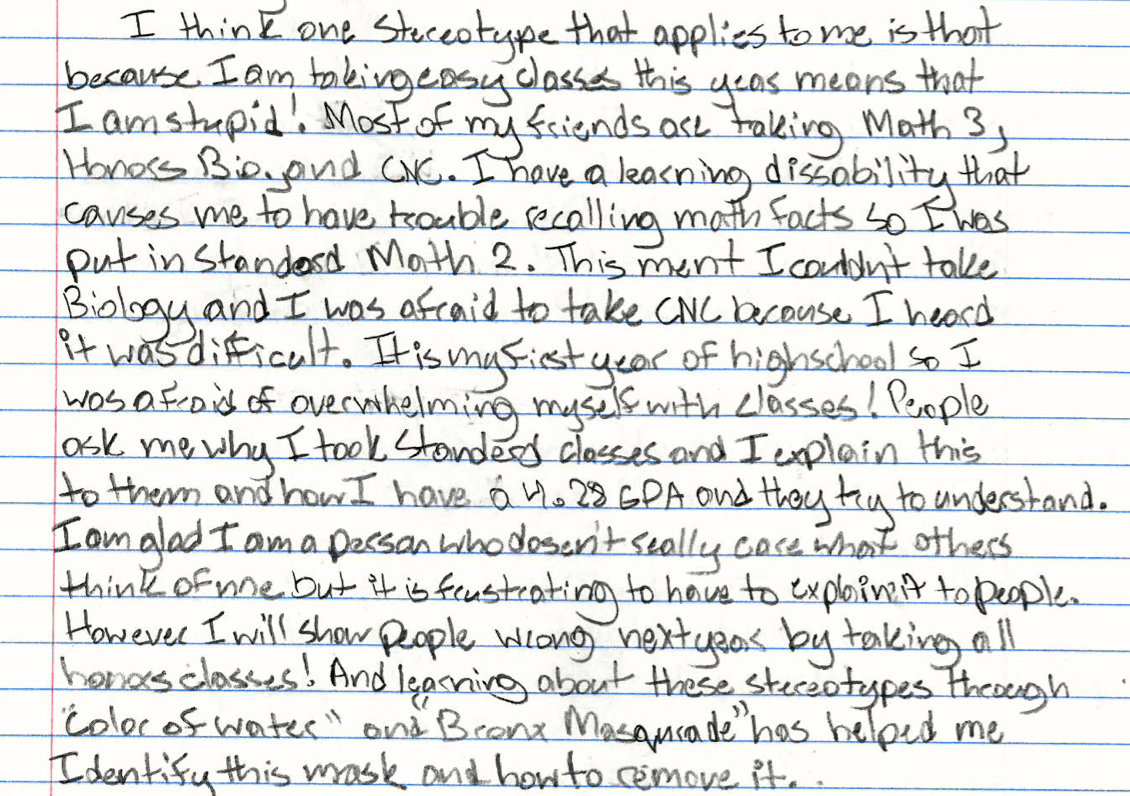 I think one stereotype that applies to me is that
because I am taking easy classes this year means that
I am stupid! Most of my friends are taking Math 3,
Honors Bio. and CNC. I have a learning dissability that
causes me to have trouble recalling math facts so I was
put in Standard Math 2. This ment I couldn't take
Biology and I was afraid to take CNC because I heard
it was difficult. It is my first year of highschool so I
was afraid of overwhelming myself with classes! People
ask me why I took Standerd classes and I explain this
to them and how I have a 4.28 GPA and they try to understand.
I am glad I am a person who dosen't really care what others
think of me but it is frustrating to have to explain it to people.
However I will show people wrong next year by taking all
honors classes! And learning about these stereotypes through
"Color of water" and "Bronx Masqurade" has helped me
Identify this mask and how to remove it.